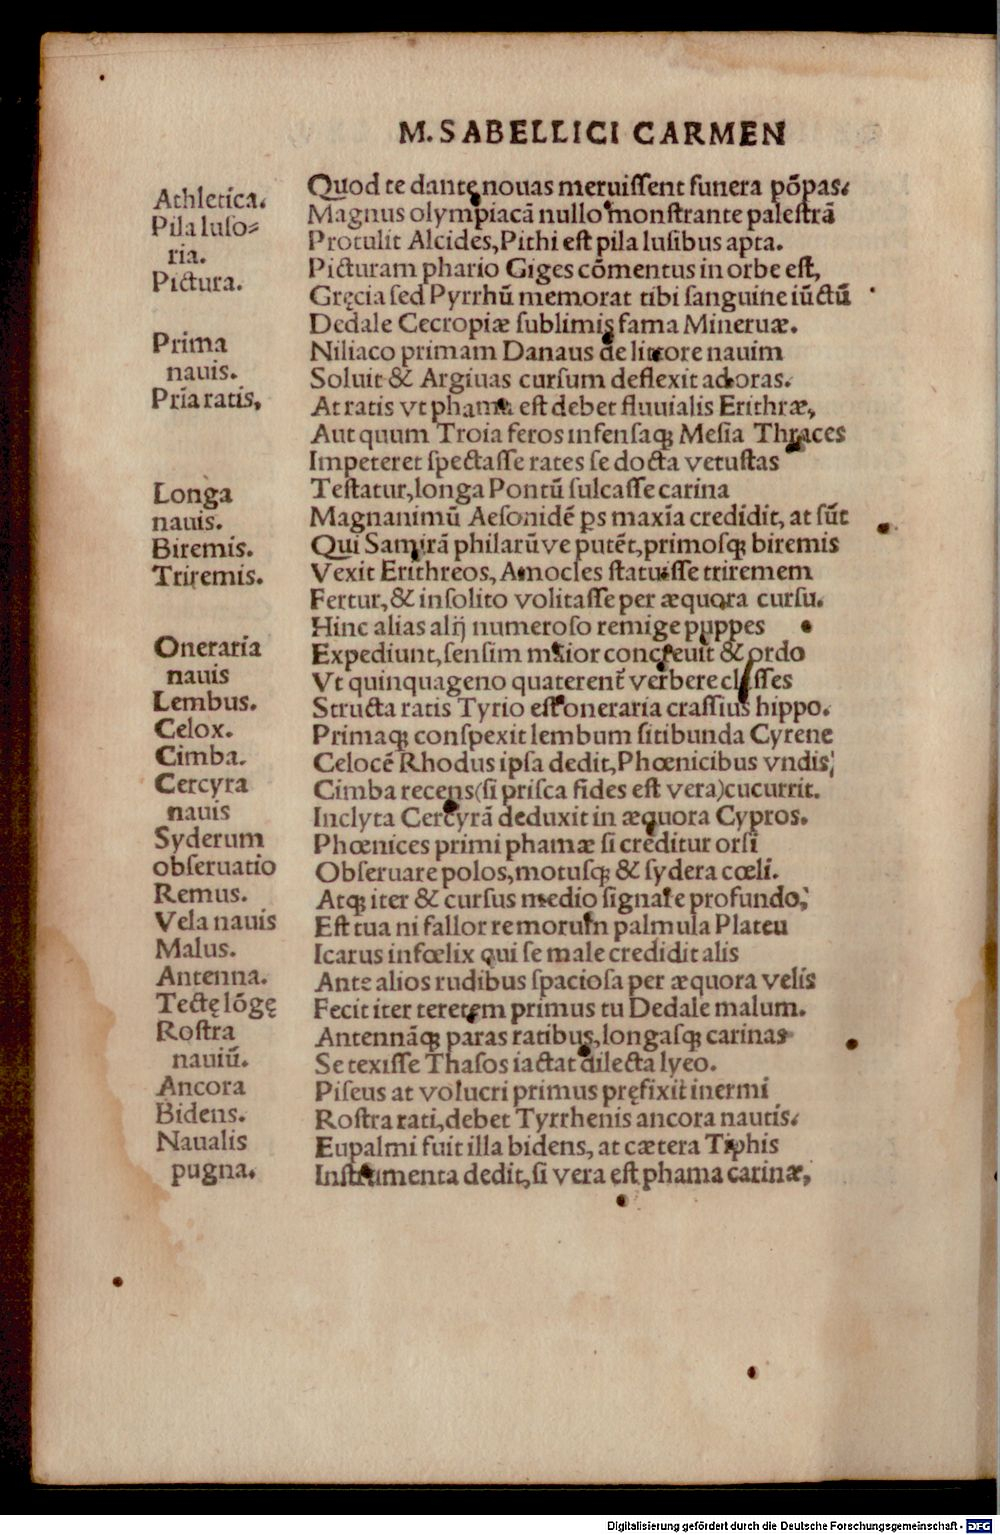 M. SABELLICI CARMEN
Athletica.
Pila luſo⸗
ria.
Pictura.
Prima
nauis.
Pria ratis,
Longa
nauis.
Biremis.
Triremis.
Oneraria
nauis
Lembus.
Celox.
Cimba.
Cercyra
nauis
Syderum
obſeruatio
Remus.
Vela nauis
Malus.
Antenna.
Tectę lōgę
Roſtra
nauiū.
Ancora
Bidens.
Naualis
pugna.
Quod te dante nouas meruiſſent funera pōpas.
Magnus olympiacā nullo monſtrante paleſtrā
Protulit Alcides, Pithi eſt pila luſibus apta.
Picturam phario Giges cōmentus in orbe eſt,
Gręcia ſed Pyrrhū memorat tibi ſanguine iūctū
Dedale Cecropiæ ſublimis fama Mineruæ.
Niliaco primam Danaus de littore nauim
Soluit & Argiuas curſum deflexit ad oras.
At ratis vt phama eſt debet fluuialis Erithræ,
Aut quum Troia feros infenſaq; Meſia Thraces
Impeteret ſpectaſſe rates ſe docta vetuſtas
Teſtatur, longa Pontū ſulcaſſe carina
Magnanimū Aeſonidē ps maxīa credidit, at sūt
Qui Samirā philarū ve putēt, primoſq; biremis
Vexit Erithreos, Amocles ſtatuiſſe triremem
Fertur, & inſolito volitaſſe per æquora curſu.
Hinc alias alij numeroſo remige puppes
Expediunt, ſenſim maior concreuit & ordo
Vt quinquageno quaterent̄ verbere claſſes
Structa ratis Tyrio eſt oneraria craſſius hippo.
Primaq; conſpexit lembum ſitibunda Cyrene
Celocē Rhodus ipſa dedit, Phœnicibus vndis
Cimba recens (ſi priſca fides eſt vera) cucurrit.
Inclyta Cercyrā deduxit in æquora Cypros.
Phœnices primi phamæ ſi creditur orſi
Obſeruare polos, motuſq; & ſydera cœli.
Atq; iter & curſus medio ſignare profundo,
Eſt tua ni fallor remorum palmula Plateu
Icarus infœlix qui ſe male credidit alis
Ante alios rudibus ſpacioſa per æquora velis
Fecit iter teretem primus tu Dedale malum.
Antennāq; paras ratibus, longaſq; carinas
Se texiſſe Thaſos iactat dilecta lyeo.
Piſeus at volucri primus pręfixit inermi
Roſtra rati, debet Tyrrhenis ancora nautis.
Eupalmi fuit illa bidens, at cætera Tiphis
Inſtrumenta dedit, ſi vera eſt phama carinæ,
Digitalisierung gefördert durch die Deutsche Forschungsgemeinschaft - DFG